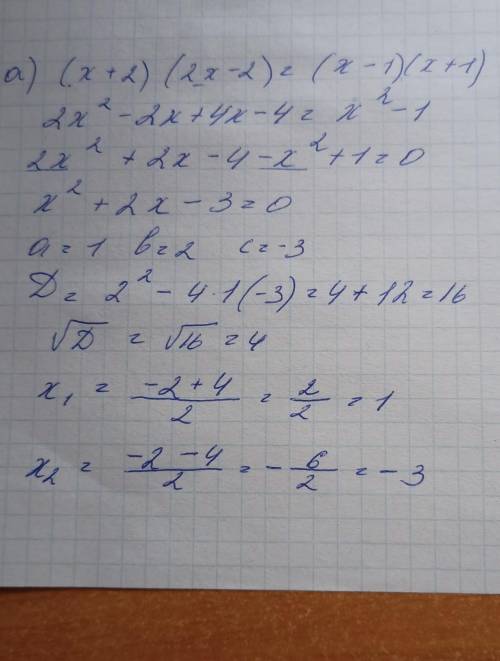 а) (x+2) (2x-2) = (x-1)(x+1)
2x² - 2x + 4x - 4 = x² - 1
2x² + 2x - 4 - x² + 1 = 0
x² + 2x - 3 = 0
a = 1 b = 2 c = -3
D = 2² - 4·1(-3) = 4 + 12 = 16
√D = √16 = 4
x₁ = (-2+4)/2 = 2/2 = 1
x₂ = (-2-4)/2 = -6/2 = -3